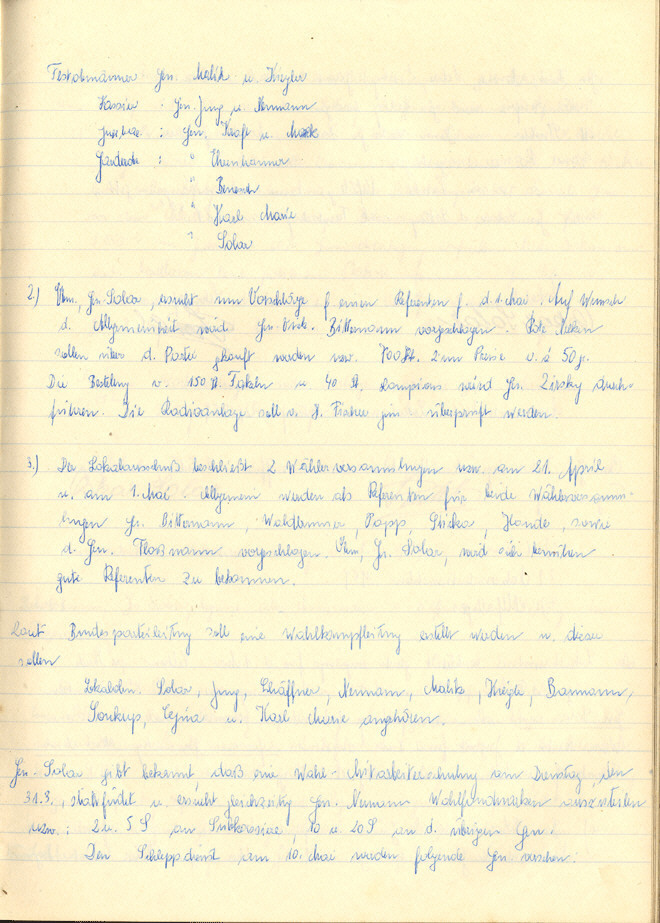 Festobmänner Gen. Malik u. Kriegler
Kassier : Gen. Jung u. Neumann
Juxbase : Gen. Kraft u. Malik
Garderobe : " Ehrenhammer
" Benesch
" Karl Marie
" Solar
2.) Obm. Gen. Solar, ersucht um Vorschläge f. einen Referenten f. d. 1. Mai. Auf Wunsch
d. Allgemeinheit wird Gen. Bittermann vorgeschlagen. Rote Nelken
sollen über d. Partei gekauft werden usw. 700 St. zum Preise v. á 50 g.
Die Bestellung v. 150 St. Fakeln u. 40 St. Lampions wird Gen. Zirsky durch-
führen. Die Radioanlage soll v. H. Fischer jun. überprüft werden.
3.) Der Lokalausschuß beschließt 2 Wählerversammlungen usw. am 21. April
u. am 1. Mai. Allgemein werden als Referenten für beide Wählerversamm-
lungen Gen. Bittermann, Waldbrunner, Papp, Slavik, Honde, sowie
d. Gen. vorgeschlagen. Obm. Gen. Solar, wird sich bemühen
gute Referenten zu bekommen.
Laut Bundesparteileitung soll eine Wahlkampfleitung erstellt werden u. dieser
sollen
Lokalobm. Solar, Jung, Schäffner, Neumann, Malik, Kriegler, Baumann,
Soukup, Cejna u. Karl Marie angehören.
Gen. Solar gibt bekannt, daß eine Wahl-Mitarbeiterschulung am Dienstag, den
31.3., stattfindet u. ersucht gleichzeitig Gen. Neumann Wahlfondmarken auszuteilen
usw.: 2 u. 5 S an Subkassiere, 10 u. 20 S an d. übrigen Gen.
Den Schleppdienst am 10. Mai werden folgende Gen. versehen: